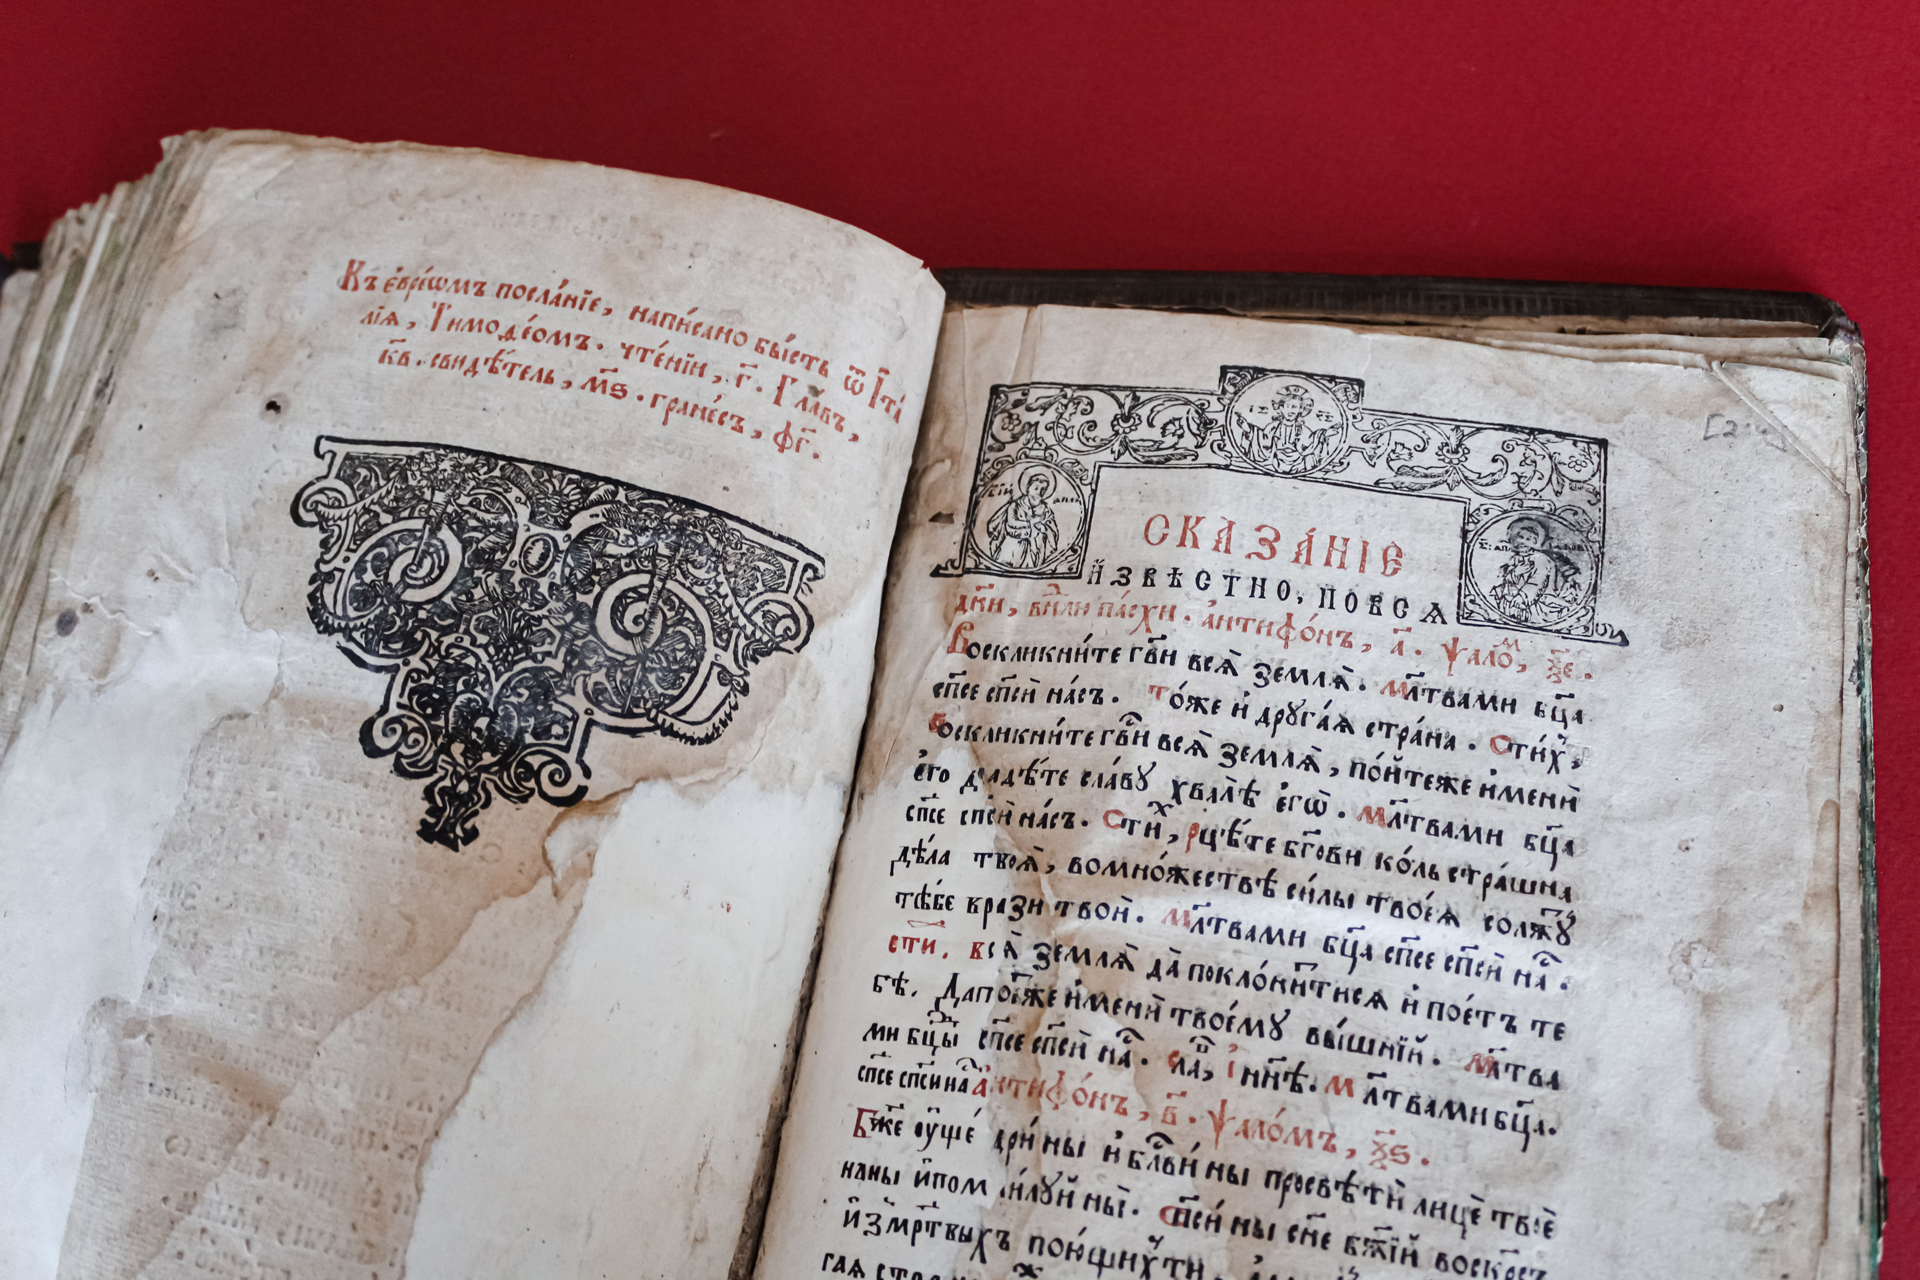 Къ є҆вре́ѡмъ посла́нїе, напи́сано бы́сть ѿ І҆та́
лїѧ, Тимоѳе́омъ. чте́нїи, г҃. Гла́въ,
к҃в. свидѣ́тель, м҃ѕ. гране́съ, ѱ҃г.
[2
СКАЗА́НІЕ
И҆ЗВѢСТНО, ПОВСѦ
дн҃и, вн҃ли па́схи. а҆нтифо́нъ, а҃. ѱало́м, ѯ҃е.
Воскликни́те гв҃и всѧ̀ землѧ̀. Мл҃твами бц҃а
сп҃се сп҃сѝ на́съ. То́же и҆ друга́ѧ страна. Сти́х,
Воскликни́те гв҃и всѧ̀ землѧ̀, по́йтеже и҆́мени
є҆го̀ дади́те сла́вꙋ хвалѣ̀ є҆гѡ̀. Мл҃твами бц҃а
сп҃се сп҃сѝ на́съ. Сти́х, рцѣ́те бг҃ови ко́ль стра́шна
дѣ́ла твоѧ̀, вомно́жествѣ си́лы твоеѧ̀ солжꙋ́
тъ́бѣ врази твоѝ. Мл҃твами бц҃а сп҃се сп҃сѝ на̑.
сти. всѧ̀ землѧ̀ да̀ покло́нитисѧ и҆ пое́тъ те
бѣ̀. Дапое́тже и҆́мени твоемꙋ̀ вы́шнїй. Мл҃тва
ми бц҃ы сп҃се сп҃сѝ на̑. сла̑, і҆ нн҃ѣ. мл҃твами бц҃а.
сп҃се сп҃си на̑ А҆нтифо́нъ, в҃. ѱало́мъ, ѯ҃ѕ.
Бж҃е оу҆ще́дри ны и҆ бл҃ви́ ны просвѣтѝ лицѐ твоѐ
наны̀ и҆поми́лꙋй ны̀. Сп҃си́ ны сн҃е бж҃їй воскр҃съ
и҆змр҃твыхъ пою́щих ти.
гаѧ